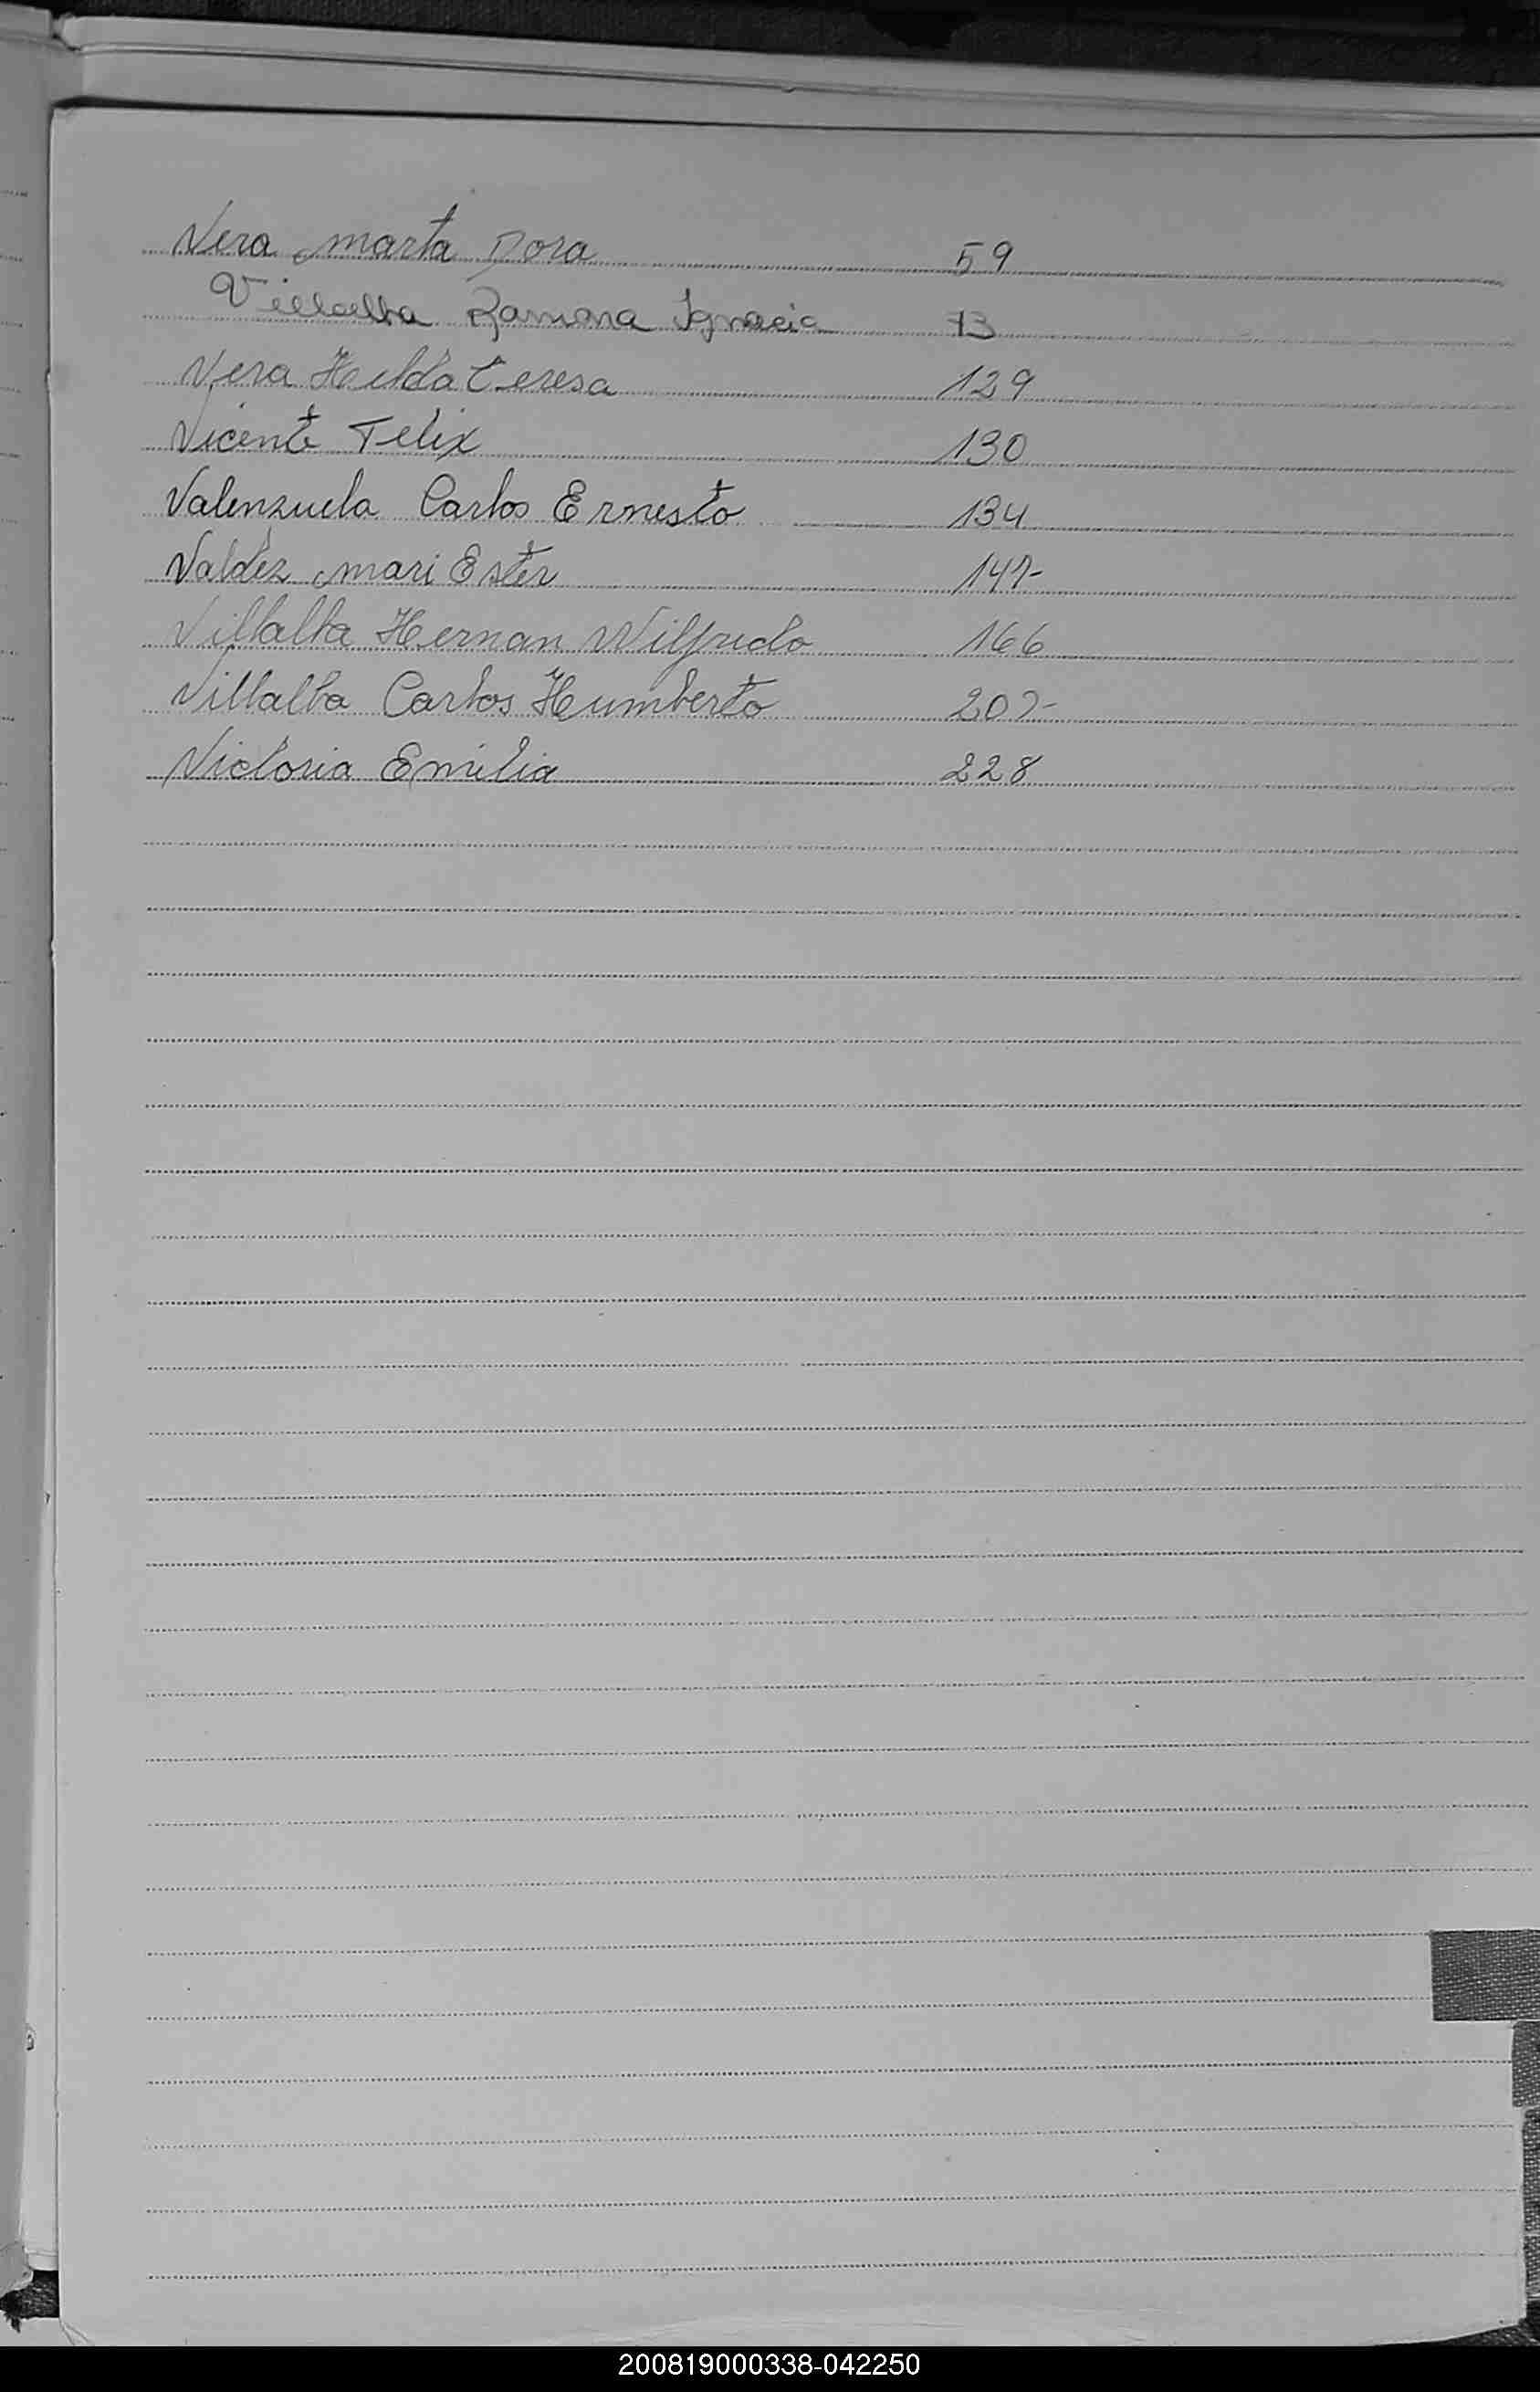 Vera Marta Dora 59
Villalba Ramona Ignacia 73
Vera Hilda Teresa 129
Vicente Felix 130
Valenzuela Carlos Ernesto 134
Valdez Mari Ester
Villalba Hernan Wilfrido 166
Villalba Carlos Humberto
Victoria Emilia 228
200819000338-042250